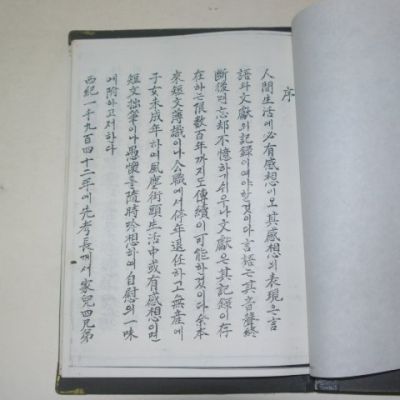 序
人間生活에必有感想이오其感想의表現은言
語와文獻의記錄이여야할것이다言語는其音聲終
斷後면忘却不憶하기쉬우나文獻은其記錄이存
在하는限數百年까지도傳續이可能한것이다余本
來短文薄識이나公職에서停年退任하고無産에
子女未成年하여風塵街頭生活中或有感想이면
短文拙筆이나愚懷를隨時吟想하여自慰의一味
에附하고저하다
西紀一千九百四十二年에先考長께서家兒四兄弟